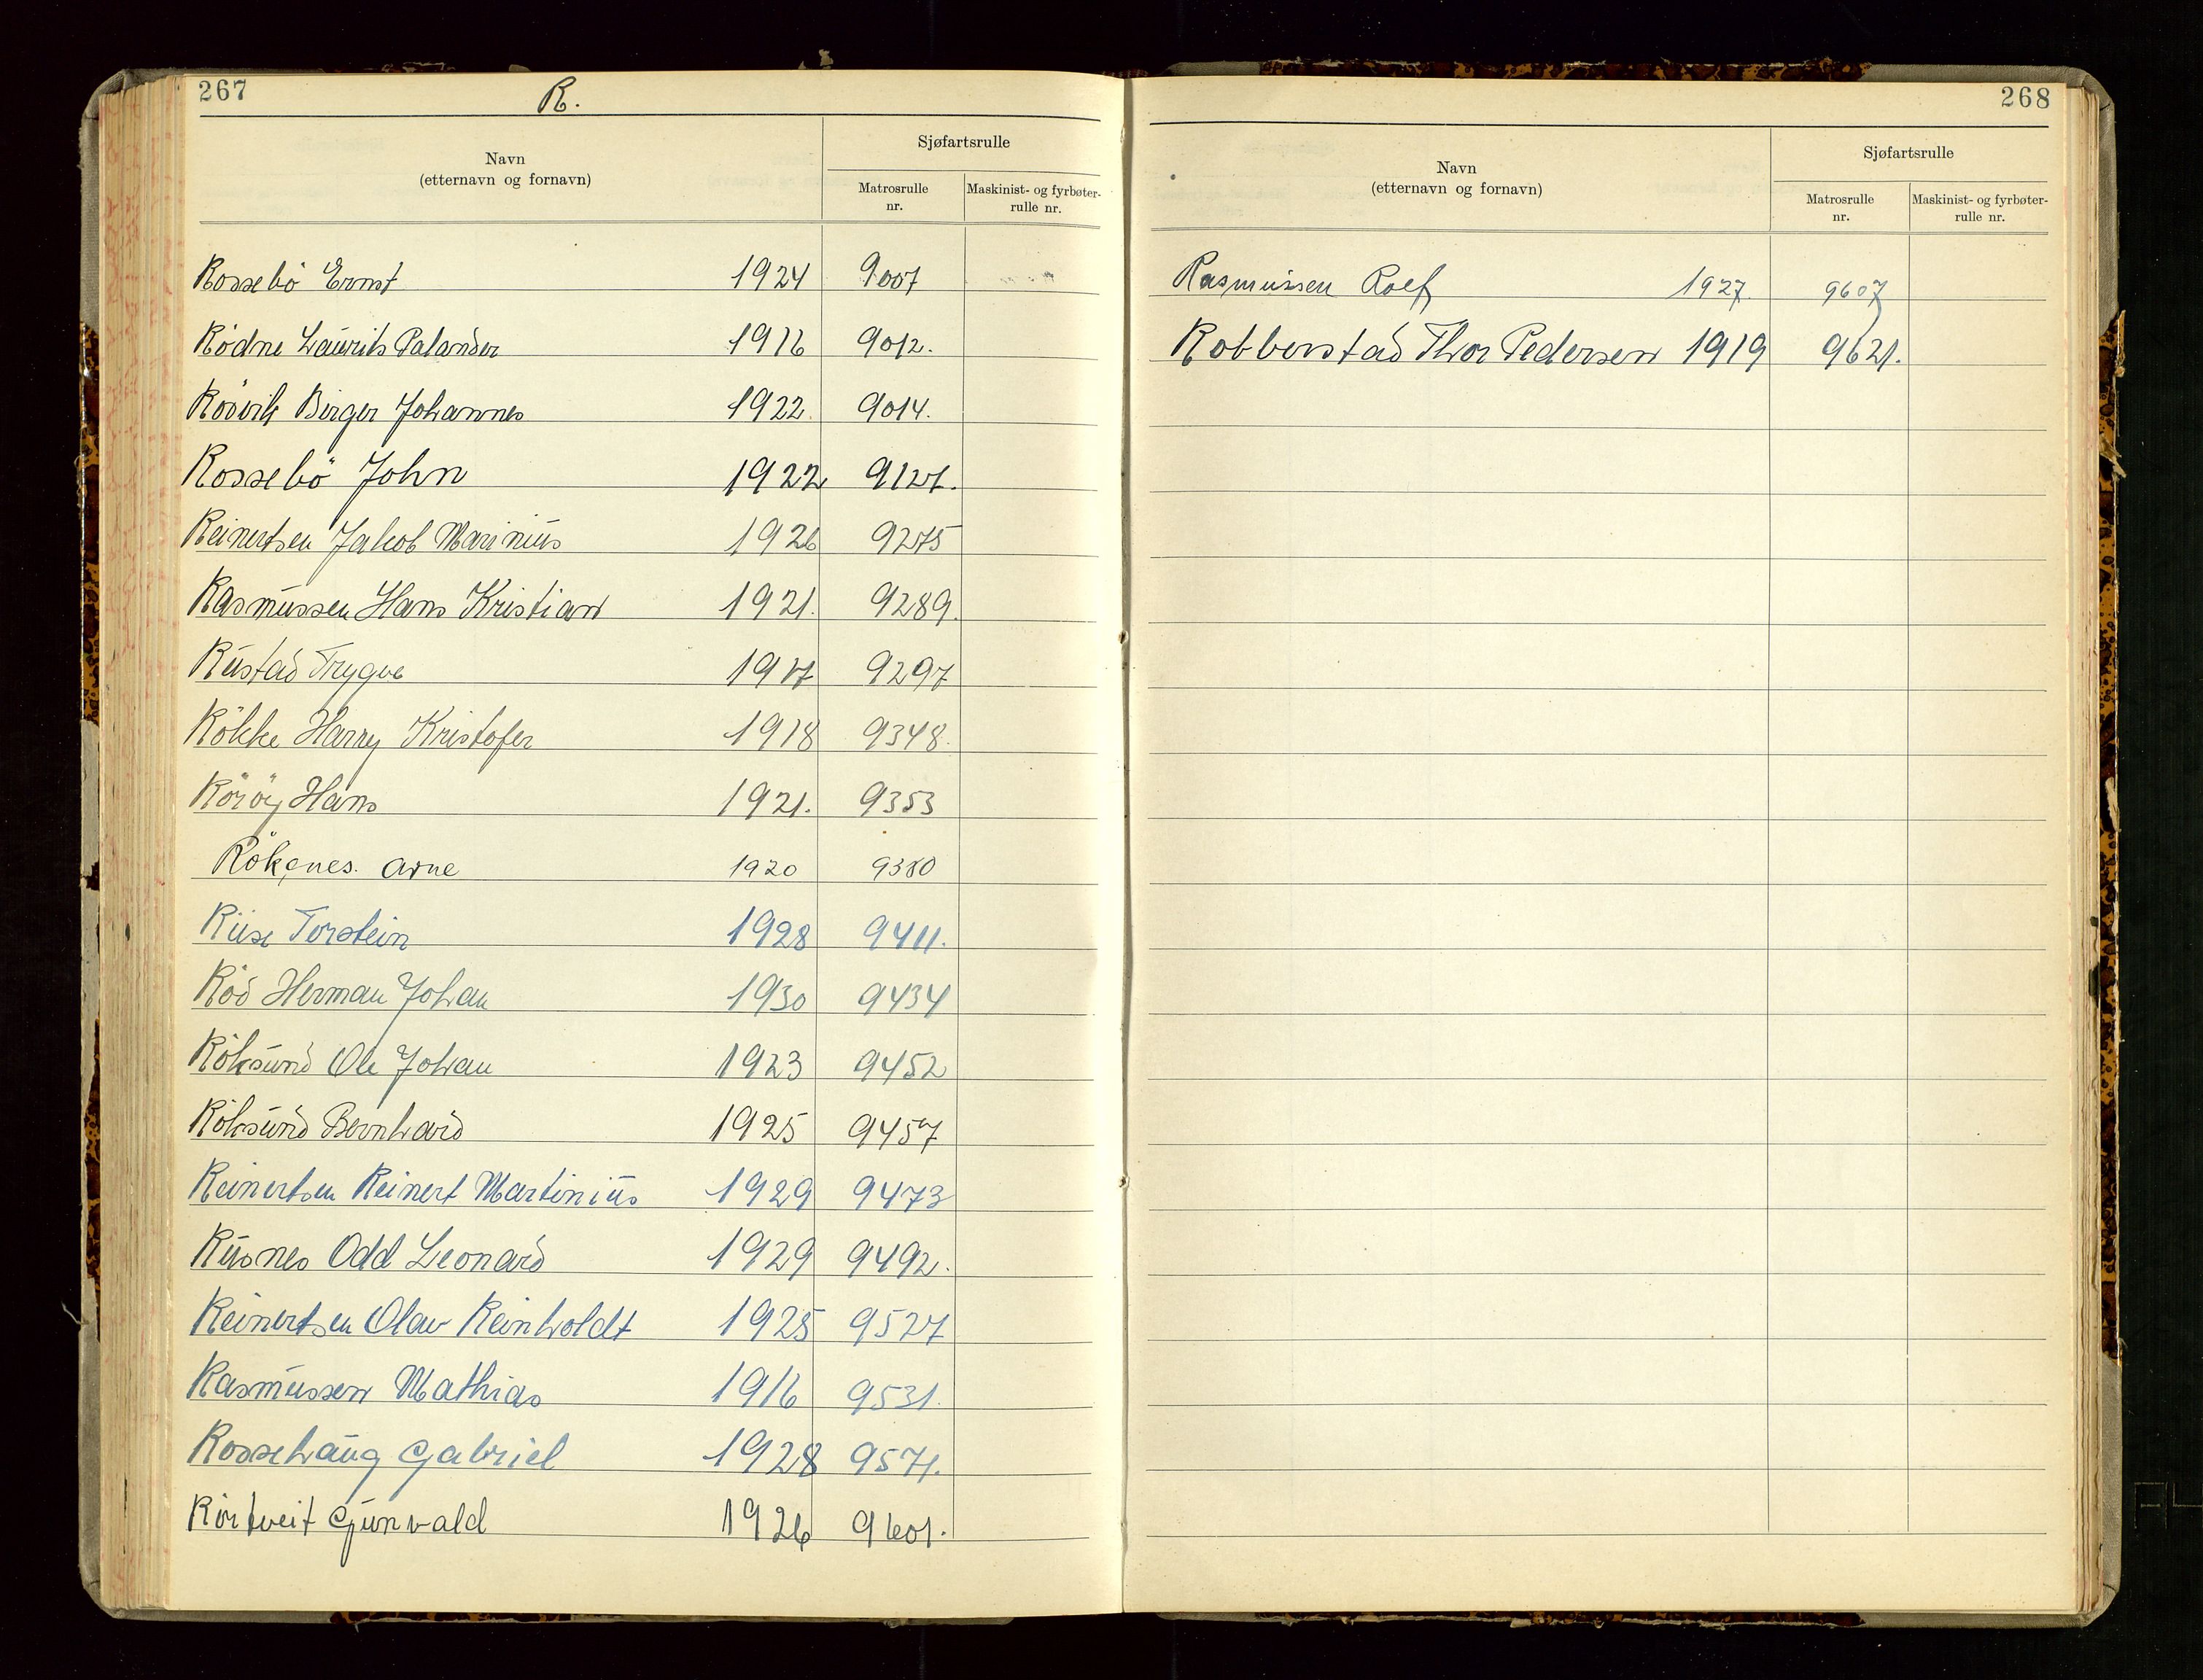 267
R.
Navn
(etternavn og fornavn)
Sjøfartsrulle
Matrosrulle
nr.
Maskinist- og fyrbøter-
rulle nr.
Rossebö Ernst 1924 9007
Rödne Laurits Palander 1916 9012.
Rösvik Birger Johannes 1922. 9014.
Rossebö John 1922 9121.
Reinertsen Jakob Marinius 1926 9275
Rasmussen Hans Kristian 1921. 9289.
Rustad Trygve 1917 9297
Rökke Harry Kristofer 1918 9348.
Röröy Hans 1921. 9353
Röksnes. Arne 1920 9380
Riise Torstein 1928 9411.
Röd Herman Johan 1930 9434
Röksund Ole Johan 1923 9452
Röksund Bernhard 1925 9457
Reinertsen Reinert Martinius 1929 9473
Rusnes Odd Leonard 1929 9492.
Reinertsen Olav Reinholdt 1925 9527
Rasmussen Mathias 1916 9531.
Rossehaug Gabriel 1928 9571.
Rörtveit Gunvald 1926 9601.
268
Navn
(etternavn og fornavn)
Sjøfartsrulle
Matrosrulle
nr.
Maskinist- og fyrbøter-
rulle nr.
Rasmussen Rolf 1927. 9607
Robberstad Thor Pedersen 1919 9621.